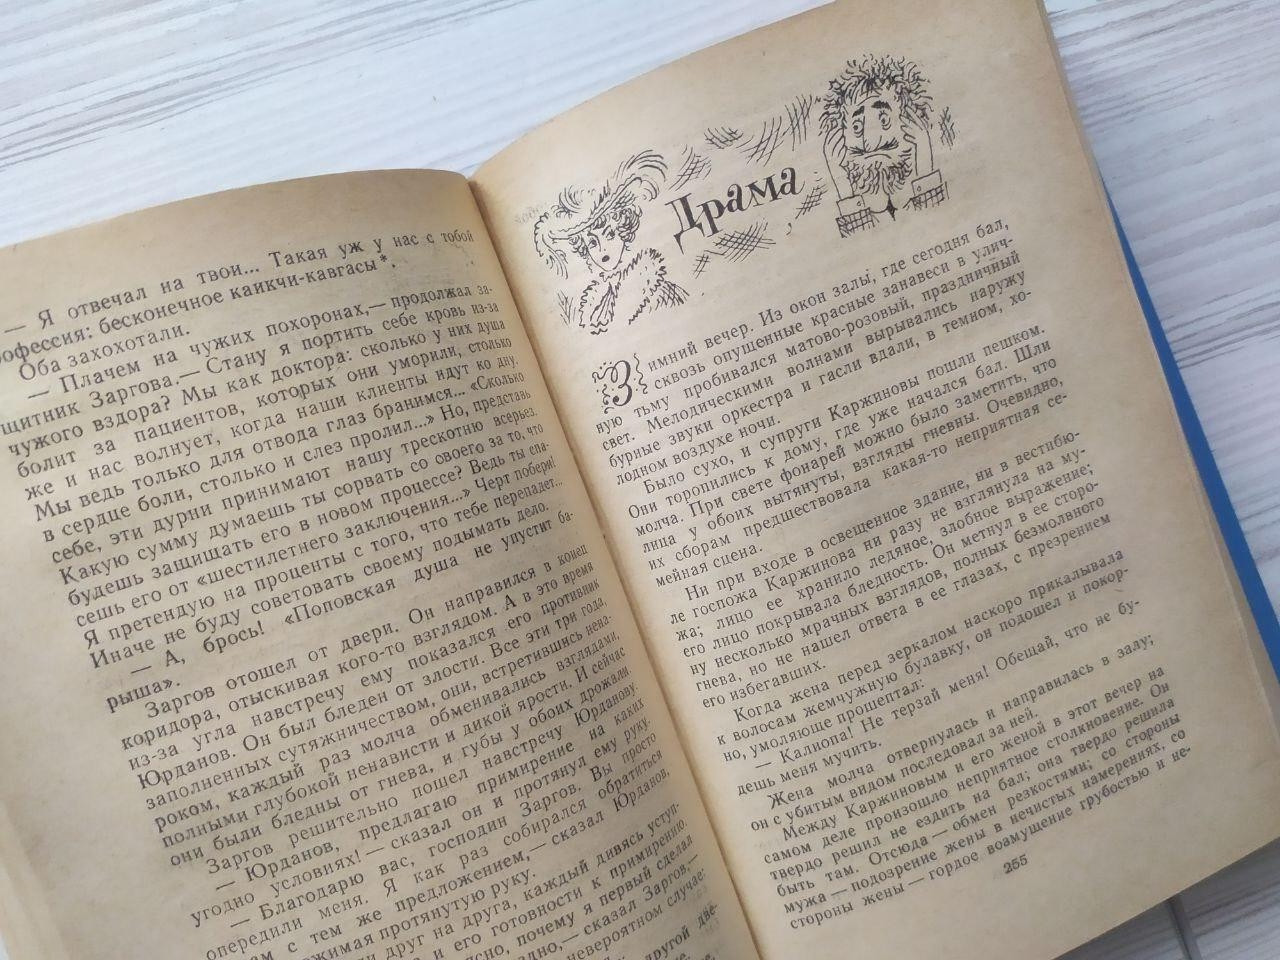 — Я отвечал на твои... Такая уж у нас с тобой
рофессия: бесконечное каикчи-кавгасы*.
Оба захохотали.
— Плачем на чужих похоронах,— продолжал за-
щитник Заргова.— Стану я портить себе кровь из-за
чужого вздора? Мы как доктора: сколько у них душа
болит за пациентов, которых они уморили, столько
же и нас волнует, когда наши клиенты идут ко дну.
Мы ведь только для отвода глаз бранимся... «Сколько
в сердце боли, столько и слез пролил...» Но, представь
себе, эти дурни принимают нашу трескотню всерьез.
Какую сумму думаешь ты сорвать со своего за то, что
будешь защищать его в новом процессе? Ведь ты спа-
сешь его от «шестилетнего заключения...» Черт побери!
Я претендую на проценты с того, что тебе перепадет...
Иначе не буду советовать своему подымать дело.
— А, брось! «Поповская душа не упустит ба-
рыша».
Заргов отошел от двери. Он направился в конец
коридора, отыскивая кого-то взглядом. А в это время
из-за угла навстречу ему показался его противник
Юрданов. Он был бледен от злости. Все эти три года,
заполненных сутяжничеством, они, встретившись нена-
роком, каждый раз молча обменивались взглядами,
полными глубокой ненависти и дикой ярости. И сейчас
они были бледны от гнева, и губы у обоих дрожали
Заргов решительно пошел навстречу Юрданову.
— Юрданов, предлагаю примирение на каких
угодно условиях!— сказал он и протянул ему руку.
— Благодарю вас, господин Заргов. Вы просто
опередили меня. Я как раз собирался обратиться
ам с тем же предложением,— сказал Юрданов,
жимая протянутую руку.
ли друг на друга, каждый дивясь уступ-
и его готовности к примирению.
ясно, почему я первый сделал
здно,— сказал Заргов,—
невероятном случае:
другой две-
Драма
Зимний вечер. Из окон залы, где сегодня бал,
сквозь опущенные красные занавеси в улич-
ную тьму пробивался матово-розовый, праздничный
свет. Мелодическими волнами вырывались наружу
бурные звуки оркестра и гасли вдали, в темном, хо-
лодном воздухе ночи.
Было сухо, и супруги Каржиновы пошли пешком.
Они торопились к дому, где уже начался бал. Шли
молча. При свете фонарей можно было заметить, что
лица у обоих вытянуты, взгляды гневны. Очевидно,
их сборам предшествовала какая-то неприятная се-
мейная сцена.
Ни при входе в освещенное здание, ни в вестибю-
ле госпожа Каржинова ни разу не взглянула на му-
жа; лицо ее хранило ледяное, злобное выражение;
его лицо покрывала бледность. Он метнул в ее сторо-
ну несколько мрачных взглядов, полных безмолвного
гнева, но не нашел ответа в ее глазах, с презрением
его избегавших.
Когда жена перед зеркалом наскоро прикалывала
к волосам жемчужную булавку, он подошел и покор-
но, умоляюще прошептал:
— Калиопа! Не терзай меня! Обещай, что не бу-
дешь меня мучить.
Жена молча отвернулась и направилась в залу;
он с убитым видом последовал за ней.
Между Каржиновым и его женой в этот вечер на
самом деле произошло неприятное столкновение. Он
твердо решил не ездить на бал; она твердо решила
быть там. Отсюда — обмен резкостями; со стороны
мужа — подозрение жены в нечистых намерениях, со
стороны жены — гордое возмущение грубостью и не-
255